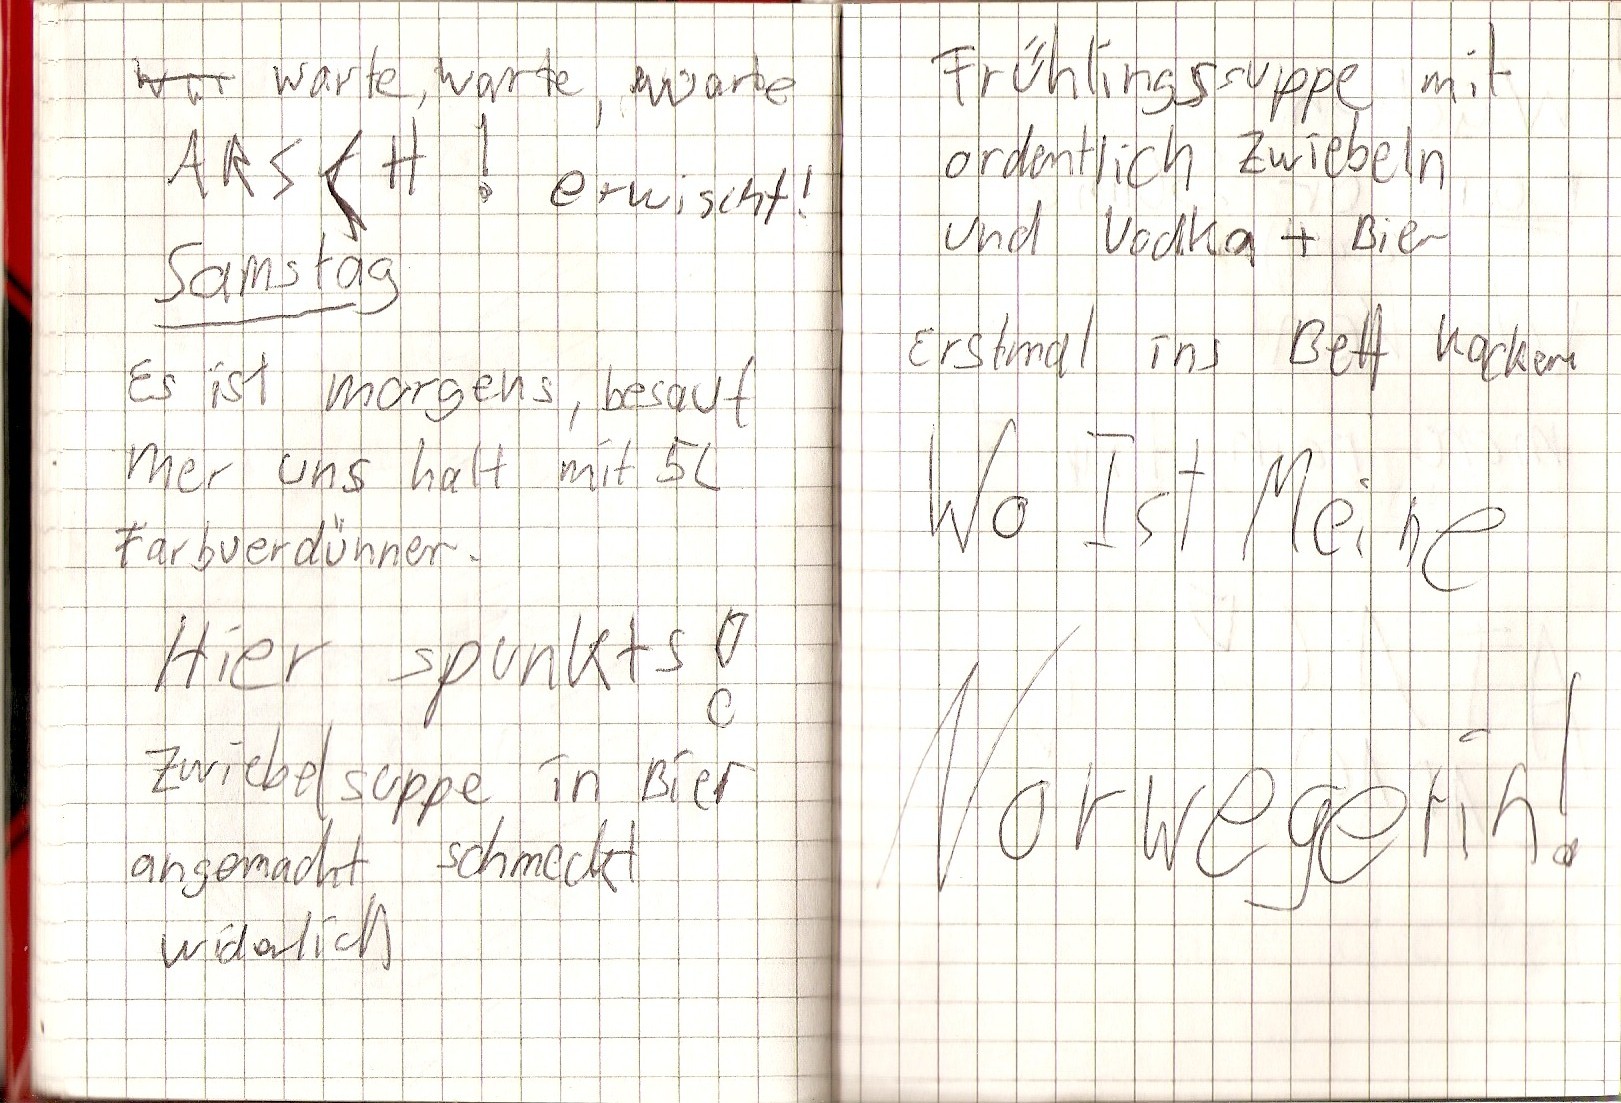 wir warte, warte, warte
ARSCH! erwischt!
Samstag
Es ist morgens, besauf
mer uns halt mit 5L
Farbverdünner.
Hier spunkts!
Zwiebelsuppe in Bier
angemacht schmeckt
widerlich
Frühlingssuppe mit
ordentlich Zwiebeln
und Vodka + Bier
Erstmal ins Bett kacken
Wo Ist Meine
Norwegerin!